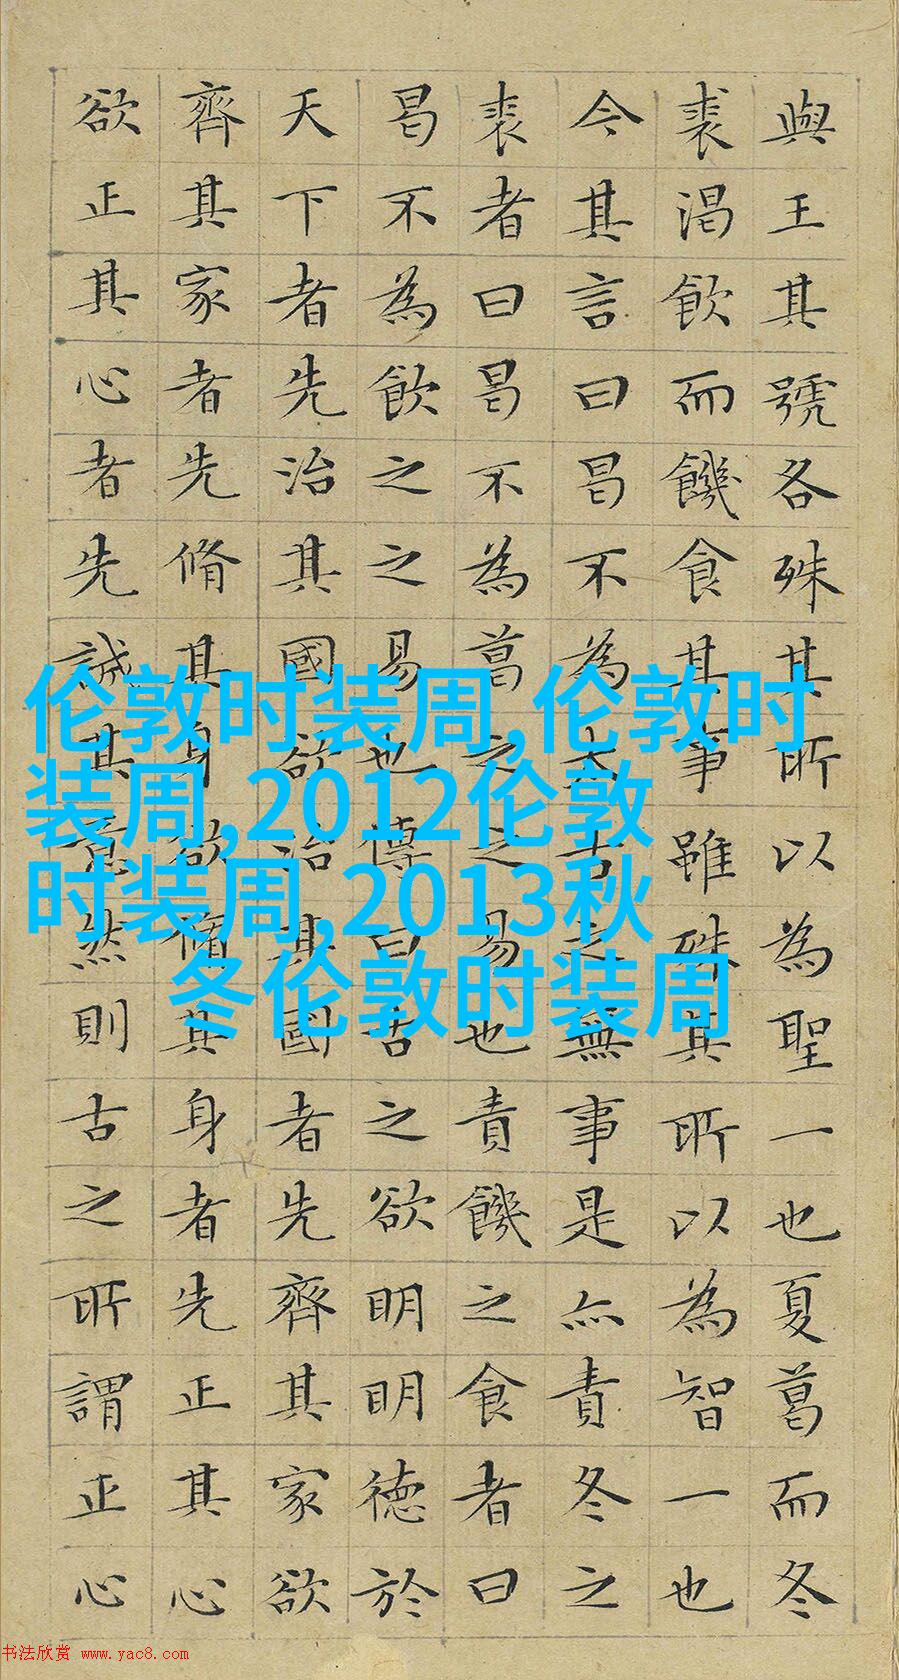 與王其號各殊其所以為聖一也夏葛而冬
裘渴飲而饑食其事雖殊其所以為智一也
今其言曰曷不為太古之無事是亦責冬之
裘者曰曷不為葛之之易也責饑之食者曰
曷不為飲之之易也傳曰古之欲明明德於
天下者先治其國欲治其國者先齊其家欲
齊其家者先脩其身欲脩其身者先正其心
欲正其心者先誠其意然則古之所謂正心
伦敦时装周,伦敦时
装周,2012伦敦
时装周,2013秋
冬伦敦时装周
书法欣赏 www.yac8.com